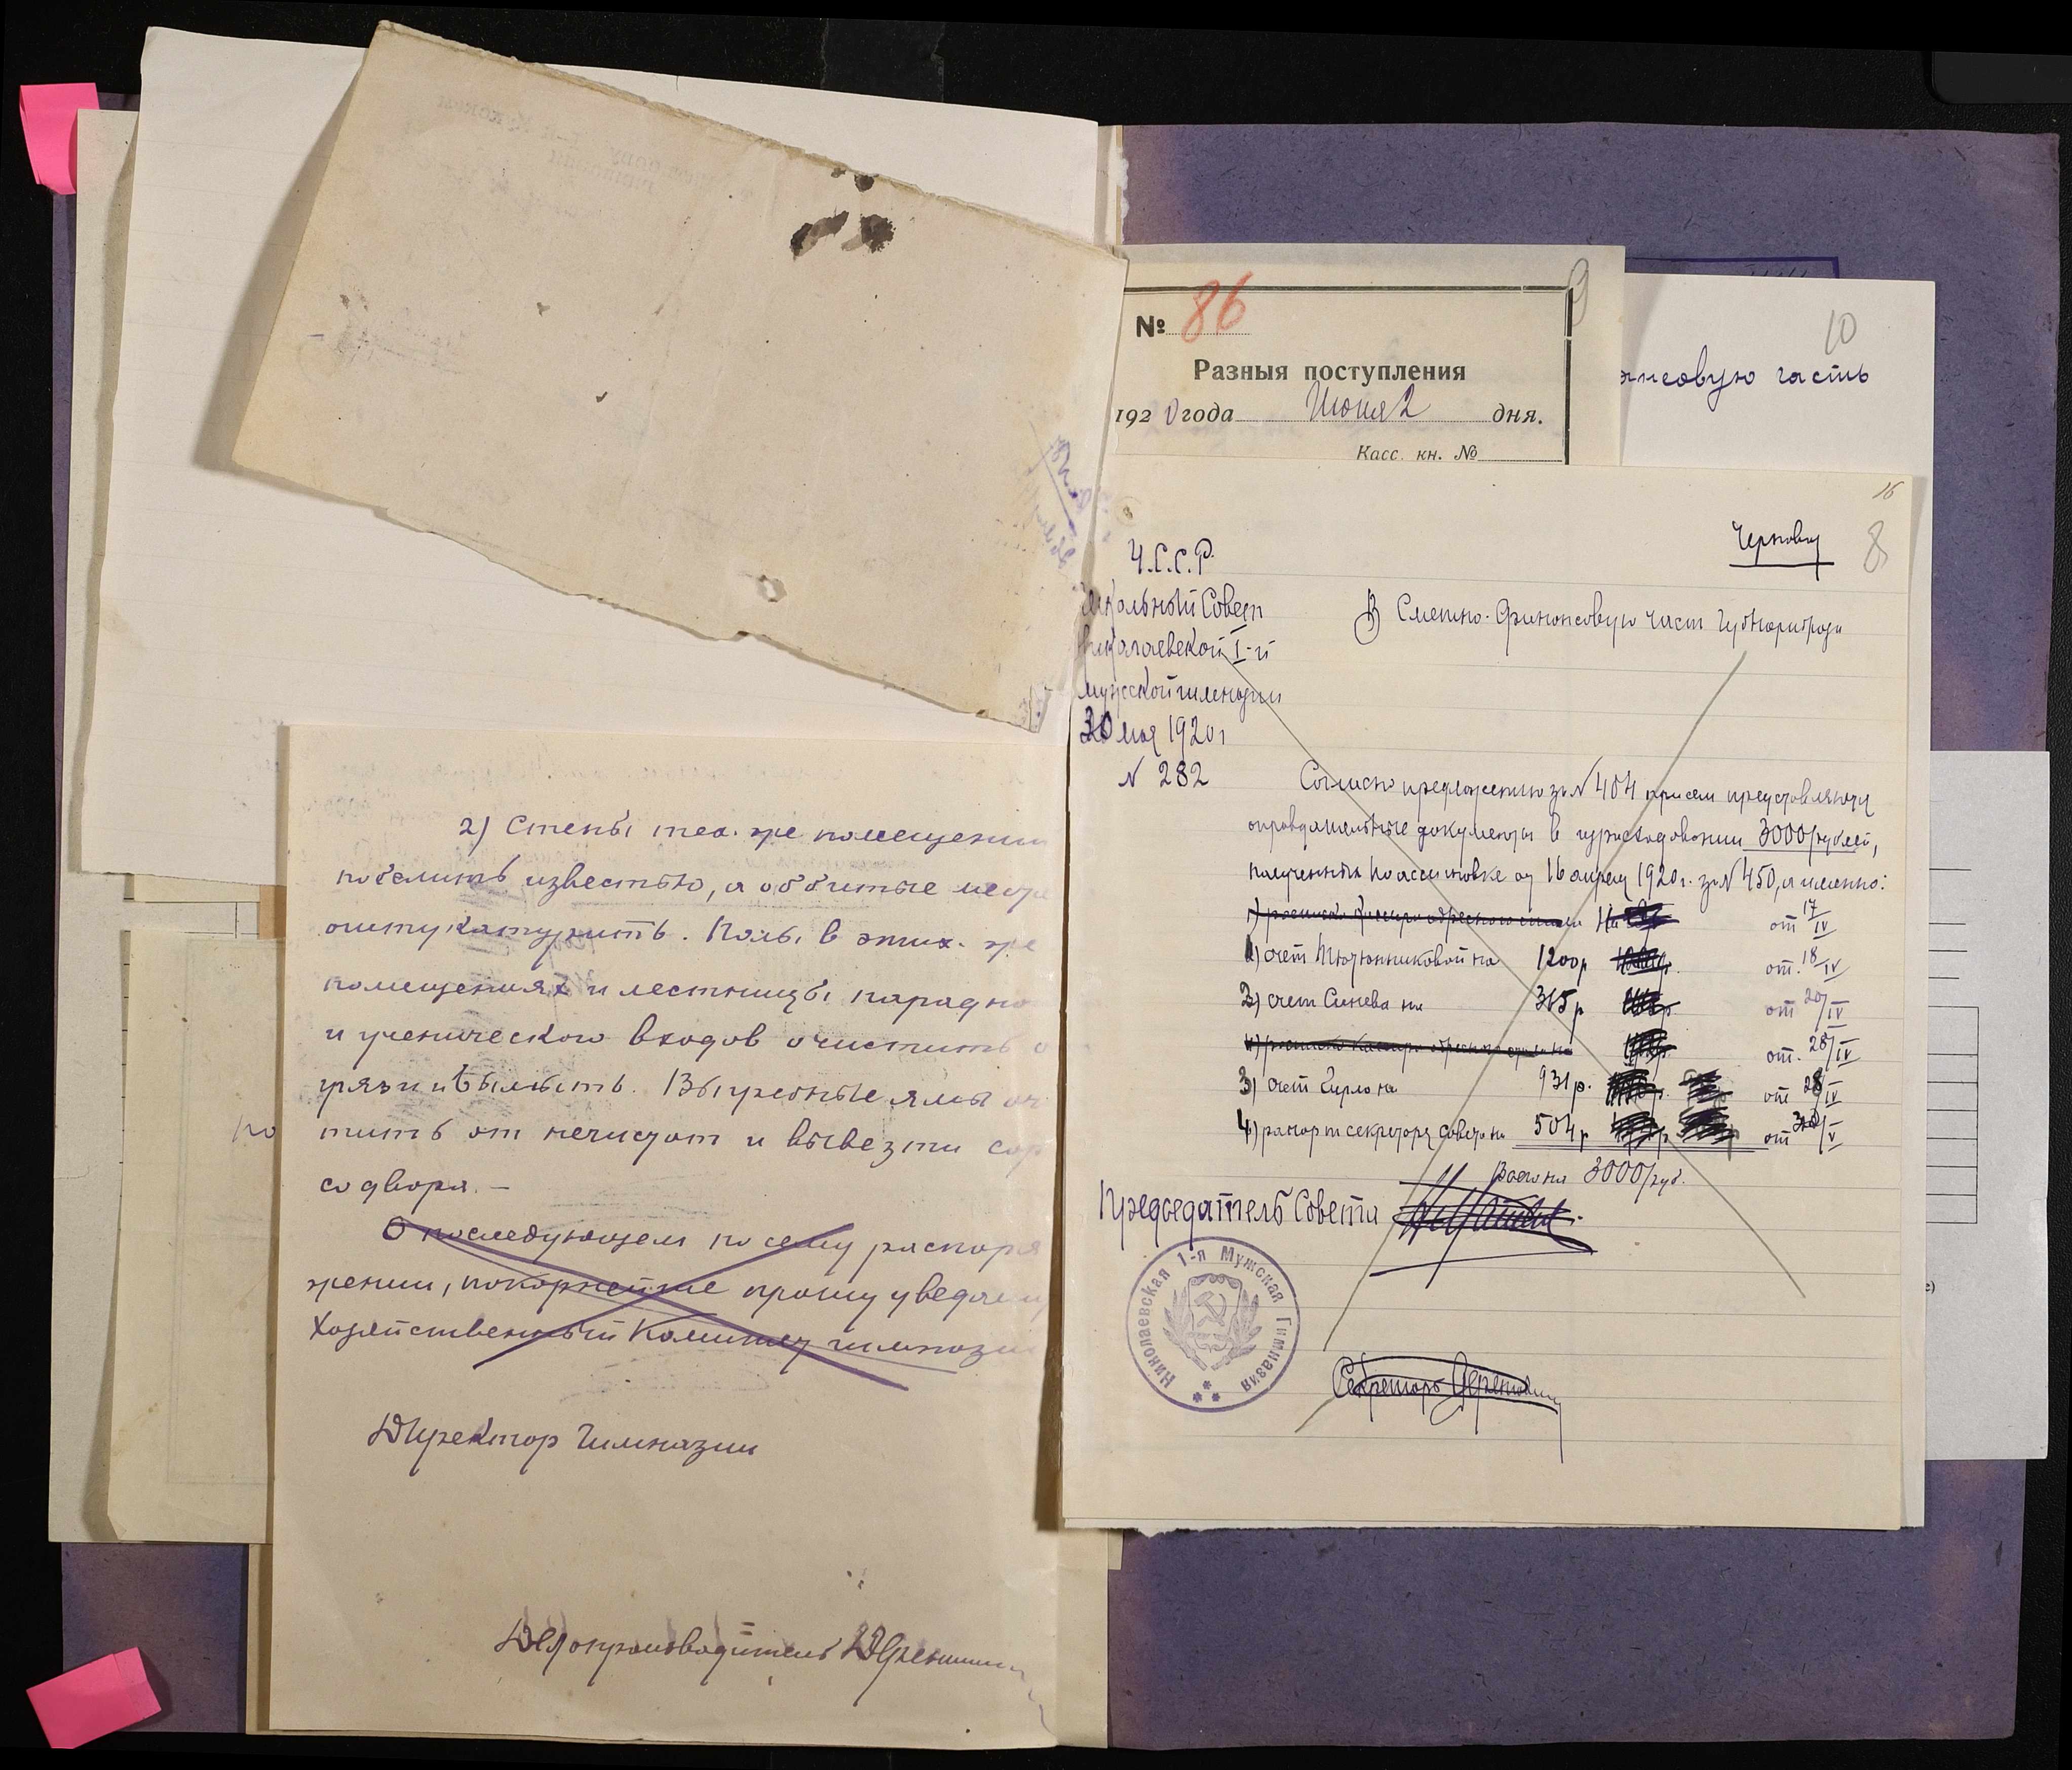 2) Стены тех. же помещении
побелить известью, а оббитые места
оштукатурить. Полы в этих. же
помещениях и лестницы парадно
и ученического входов очистить о
грязи и вымыть. Выгребные ямы очи
тить от нечистот и вывезти сор
со двора. –
О последующем по сему распоря
жении, покорнейше прошу уведомить
Хозяйственный Комитет гимназии
Директор Гимназии
Делопроизводитель
но
№ 86
9
Разныя поступления
1920 года Июня 2 дня.
Касс. кн. №
10
ансовую часть
16
Черновик
8
У.С.С.Р.
Школьный Совет
Николаевской I-й
мужской гимназии
30 мая 1920 г
N 282
В Сметно-Финансовую часть Губнаробраза
Согласно предложению за N 404 при сем представляются
оправдательные документы в израсходовании 3000 рублей,
полученных по ассигновке от 16 апреля 1920 г. за N 450, а именно:
от 17/IV
1) счет Тютюнниковой на 1200 р от. 18/IV
2) счет Синева на 365 р от 20/IV
от. 28/IV
3) счет Гирло на 931 р. от 28/IV
4) рапорт секретаря совета на 504 р от 30/V
Всего на 3000 руб.
Председатель Совета
Николаевская 1-я Мужская Гимназия
Секретарь